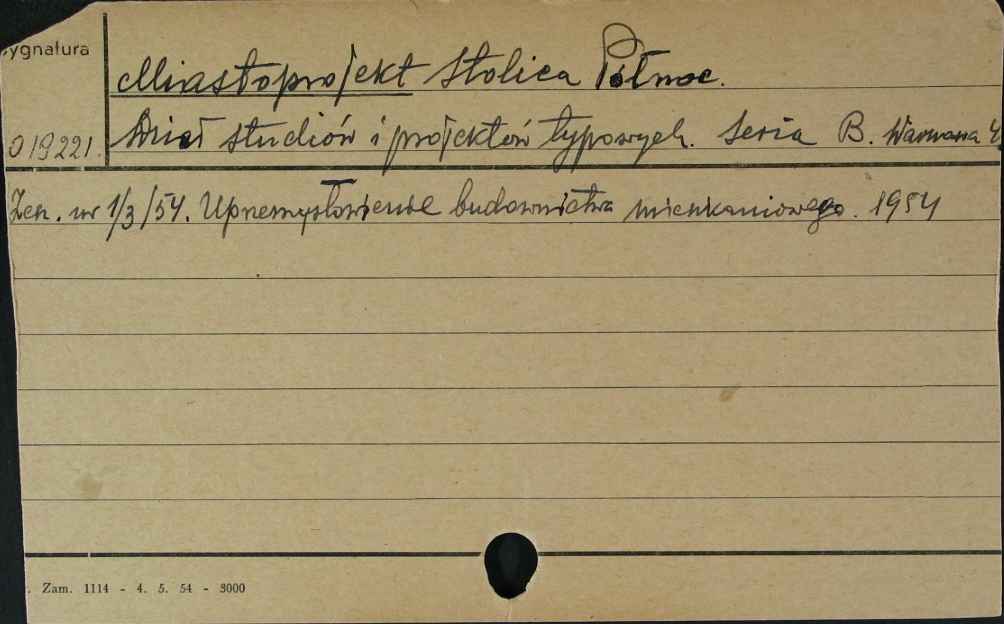 ygnatura
Miastoprojekt Stolica Północ.
019221. Dział studiów i projektów typowych. Seria B. Warszawa
Zesz. nr 1/3/54. Uprzemysłowienie budownictwa mieszkaniowego. 1954
. Zam. 1114 - 4. 5. 54 - 3000